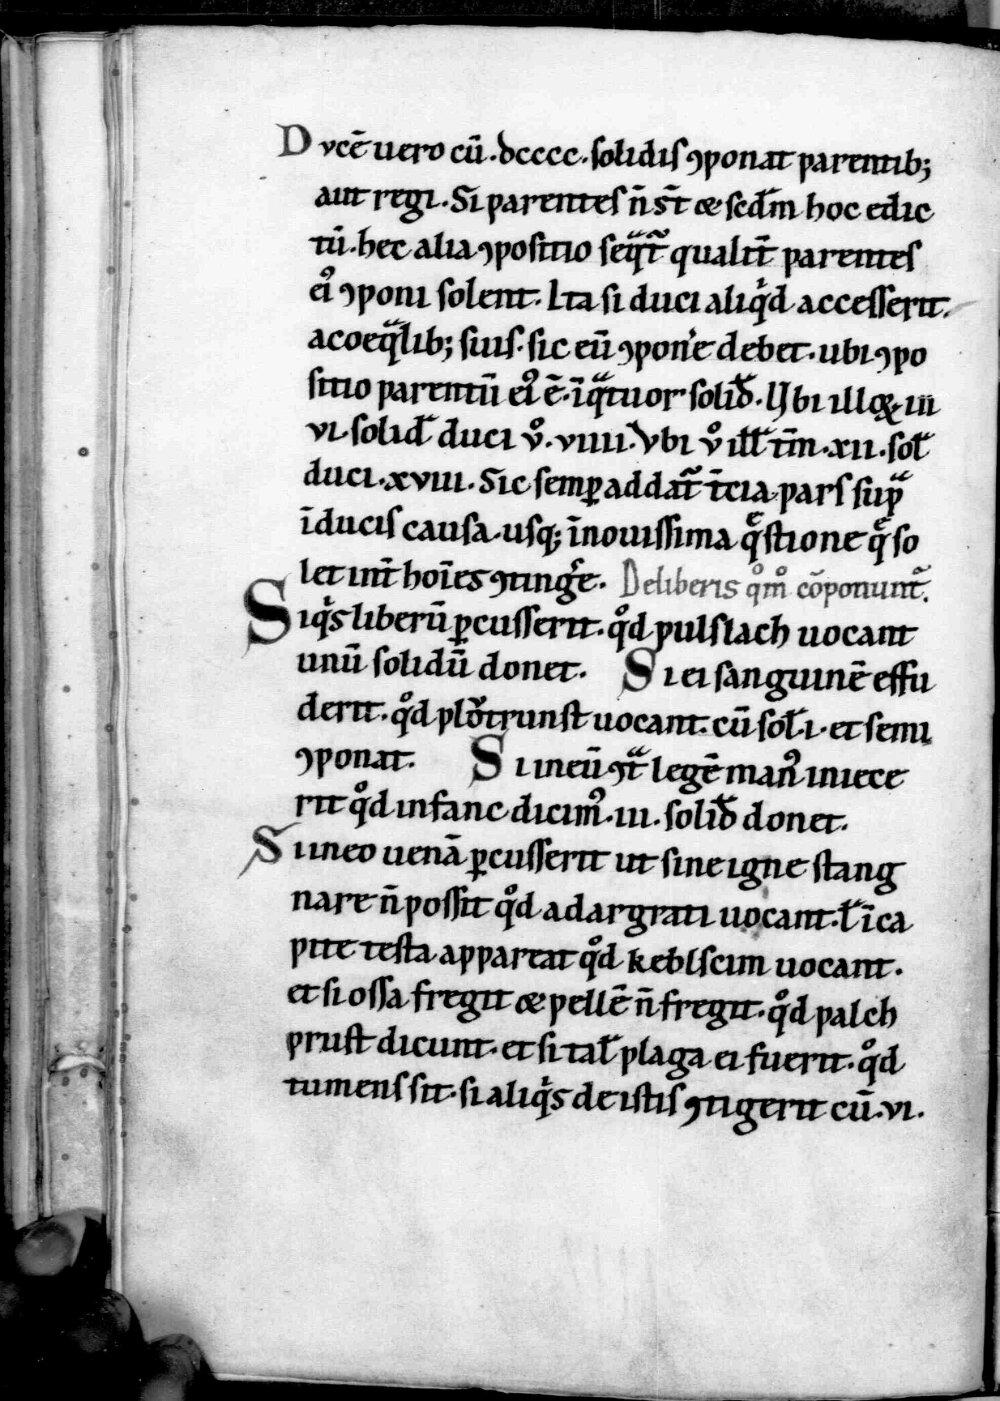 Dvcē uero cū .dcccc. solidis ꝯponat parentib;
aut regi. Si parentes n̄ st̄ & scdm̄ hoc edic
tū. hec alia ꝯpositio seqͣt᷑ qualit̄ parentes
eiꝰ ꝯponi solent. Ita si duci aliqͥd accesserit.
a coeqͣlib; suis. sic eū ꝯpon̄e debet. ubi ꝯpo
sitio parentū eiꝰ ē. īqͣtuor solid̄. Ubi illoꝝ iii
vi. solid̄ duci v̊. viiii. Vbi v̊ ill̄ tm̄. xii. sol̄
duci. xviii. Sic semꝑ addat᷑ t̄cia pars supͣ
ī ducis causa. usq; ī nouissima q̄stione q̄ so
let int̄ hoīes ꝯtinḡe. De liberis qͦmͦ cōponunt᷑.
Siqͥs liberū ꝑcusserit. qͦd pulslach uocant
unū solidū donet. Si ei sanguinē effu
derit. qͦd plōtrunst uocant. cū sol̄. i. et semi
ꝯponat. Si in eū ꝯtͣ legē manꝰ iniece
rit qͦd infanc dicimꝰ. iii. solid̄ donet.
Si in eo uenā ꝑcusserit ut sine igne stang
nare n̄ possit qͦd adargrati uocant. l̄ ī ca
pite testa appareat qͦd keblscim uocant.
et si ossa fregit & pellē n̄ fregit. qͦd palch
prust dicunt. et si tal̄ plaga ei fuerit. qͦd
tumens sit. si aliqͥs de istis ꝯtigerit cū. vi.